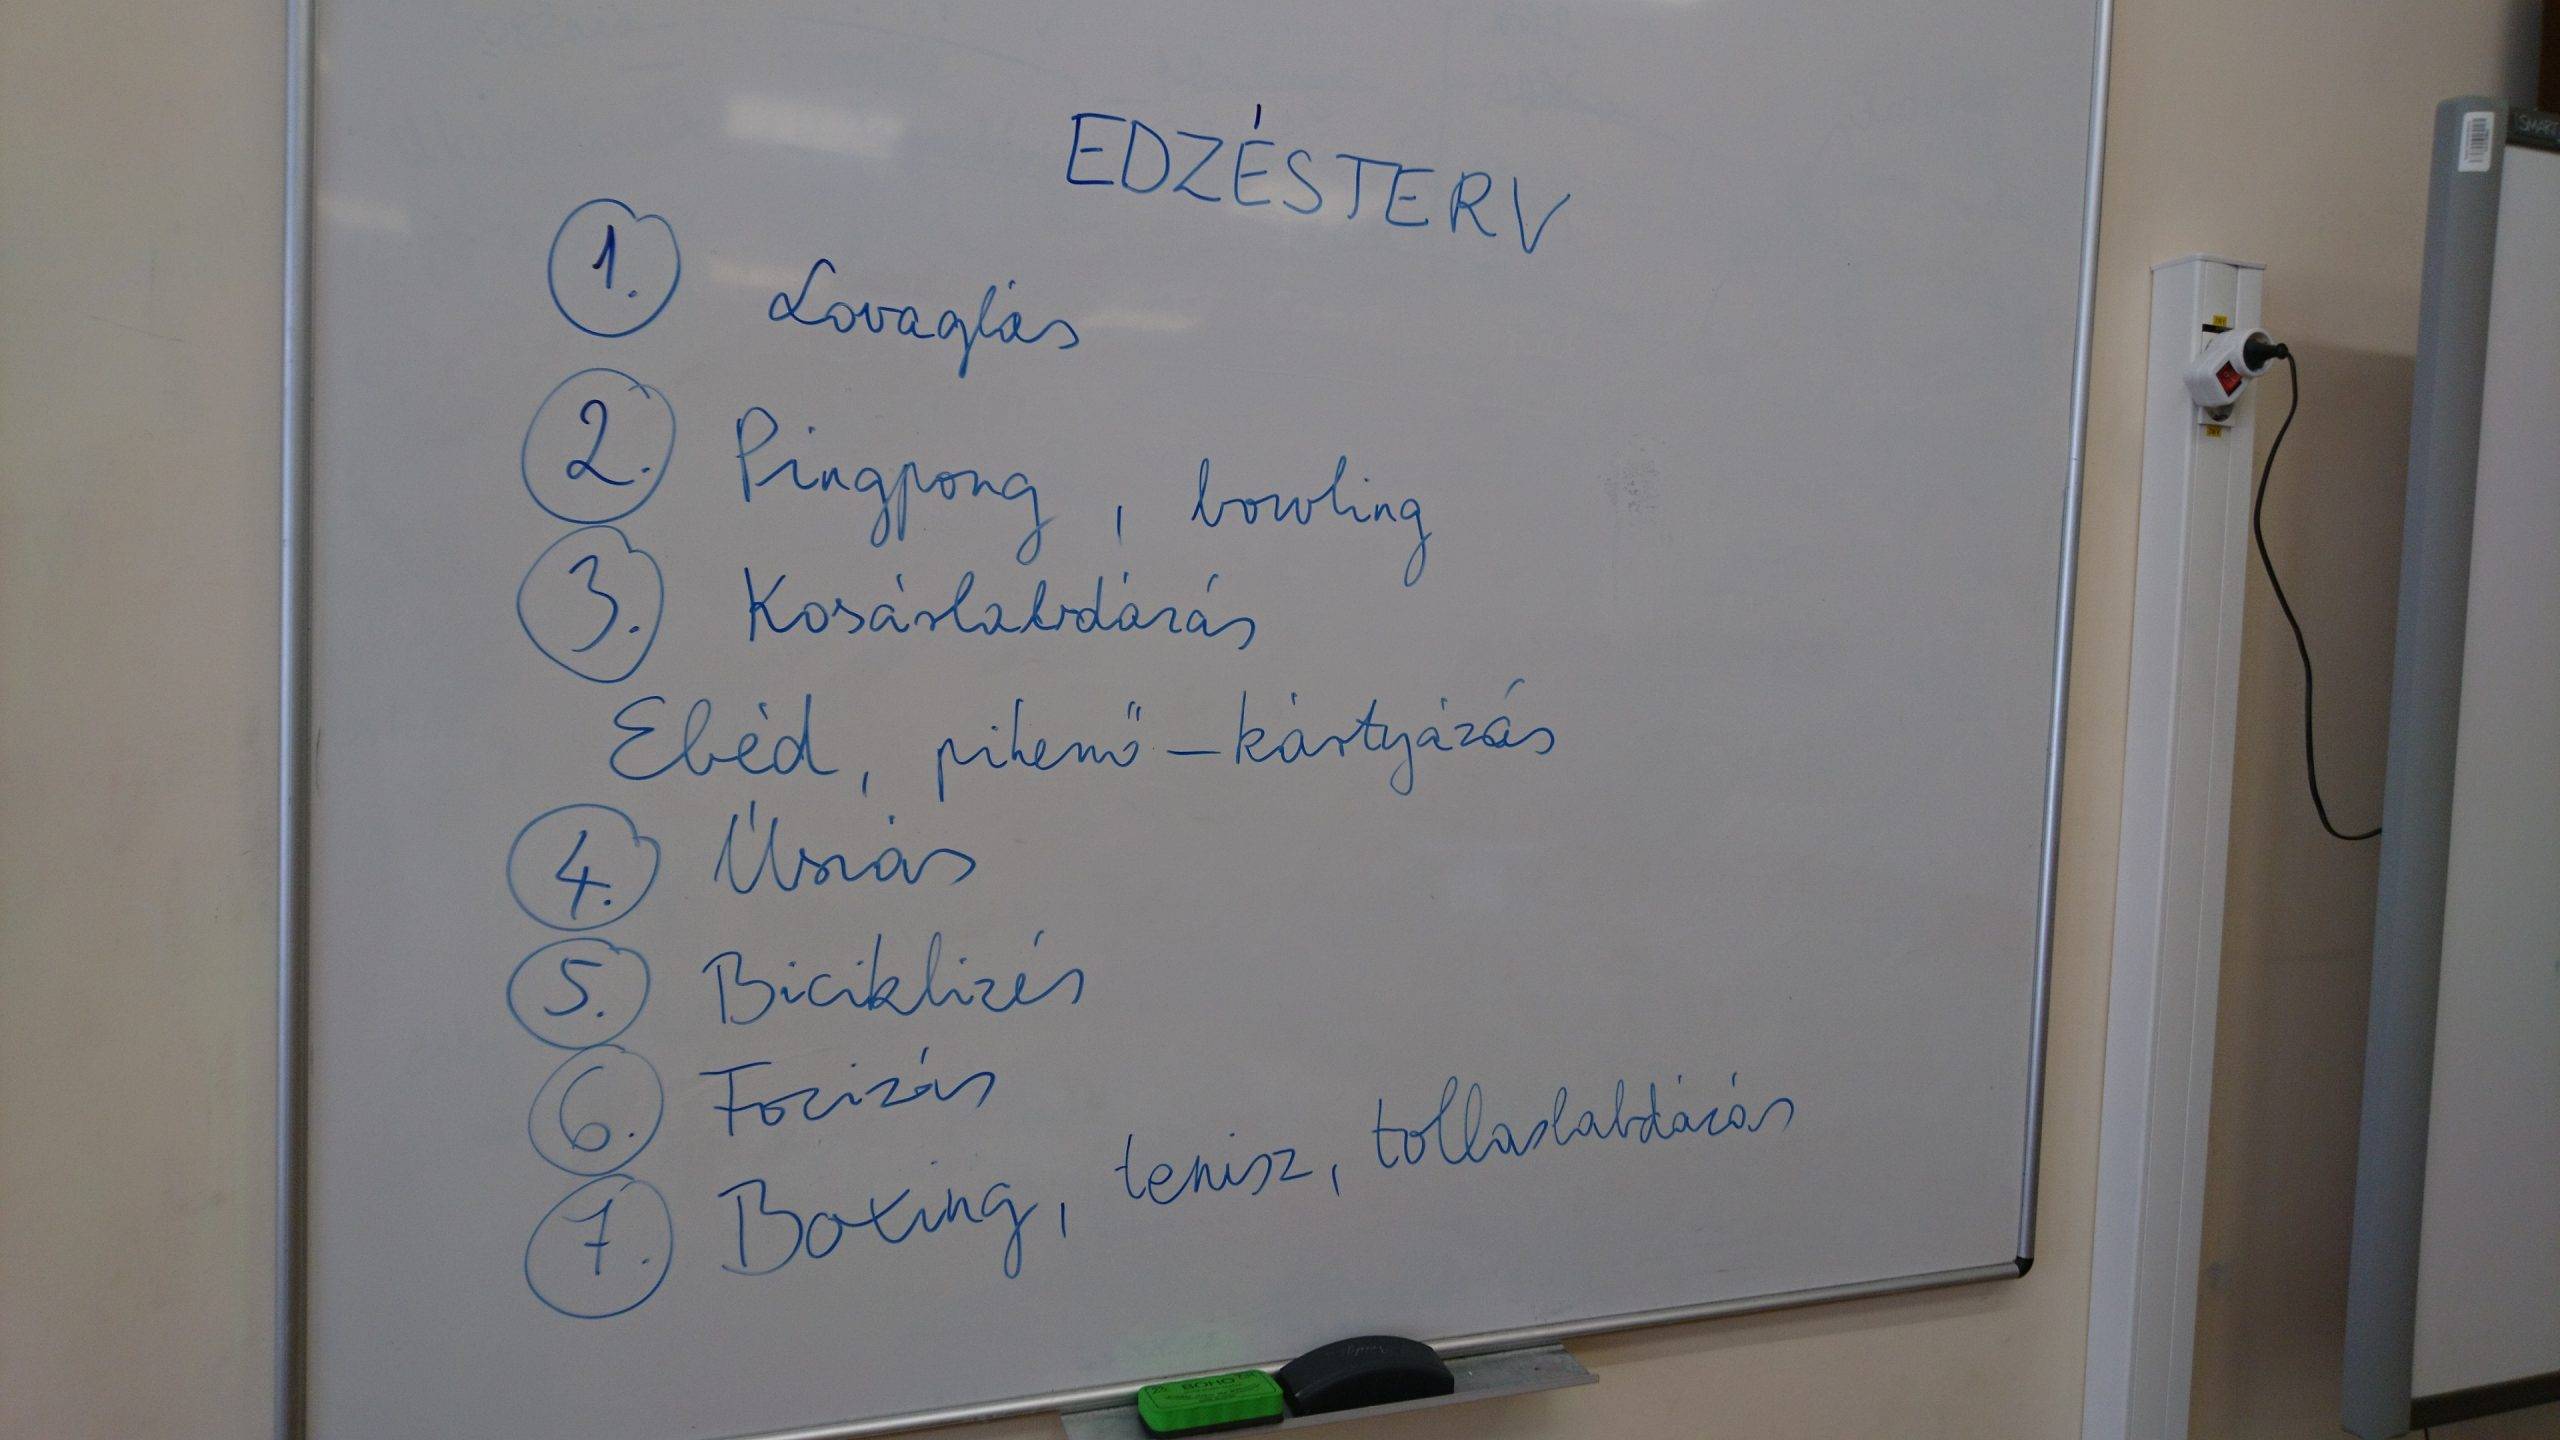 EDZÉSTERV
1. Lovaglás
2. Pingpong, bowling
3. Kosárlabdázás
Ebéd, pihenő – kártyázás
4. Úszás
5. Biciklizés
6. Focizás
7. Boxing, tenisz, tollaslabdázás
SMART
BOHO